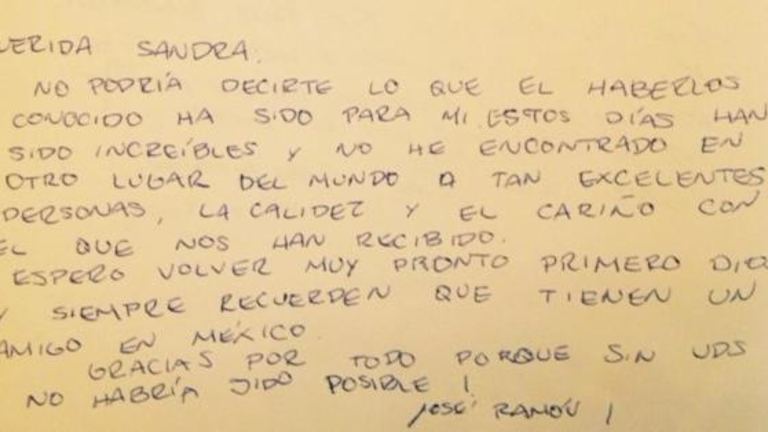 UERIDA SANDRA.
NO PODRÍA DECIRTE LO QUE EL HABERLOS
CONOCIDO HA SIDO PARA MI. ESTOS DÍAS HAN
SIDO INCREÍBLES Y NO HE ENCONTRADO EN
OTRO LUGAR DEL MUNDO A TAN EXCELENTES
PERSONAS, LA CALIDEZ Y EL CARIÑO CON
EL QUE NOS HAN RECIBIDO.
ESPERO VOLVER MUY PRONTO PRIMERO DIOS
Y SIEMPRE RECUERDEN QUE TIENEN UN
AMIGO EN MÉXICO
GRACIAS POR TODO PORQUE SIN UDS
NO HABRÍA SIDO POSIBLE!
JOSÉ RAMÓN